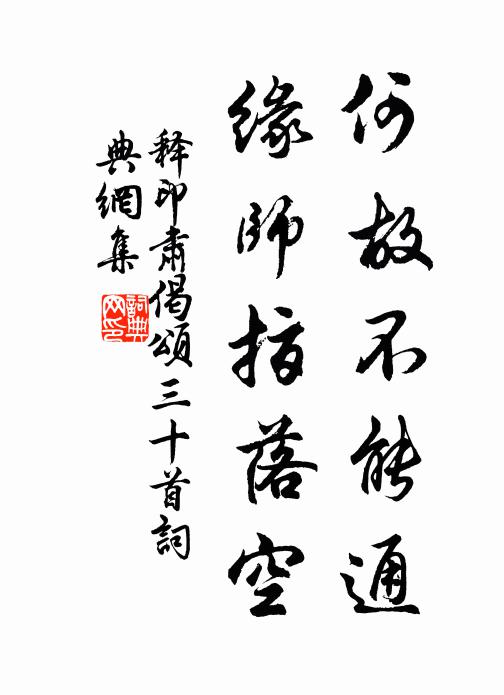 何故不能通
緣師指落空
釋印肅偈頌三十首詞
典網集
詞典
网印